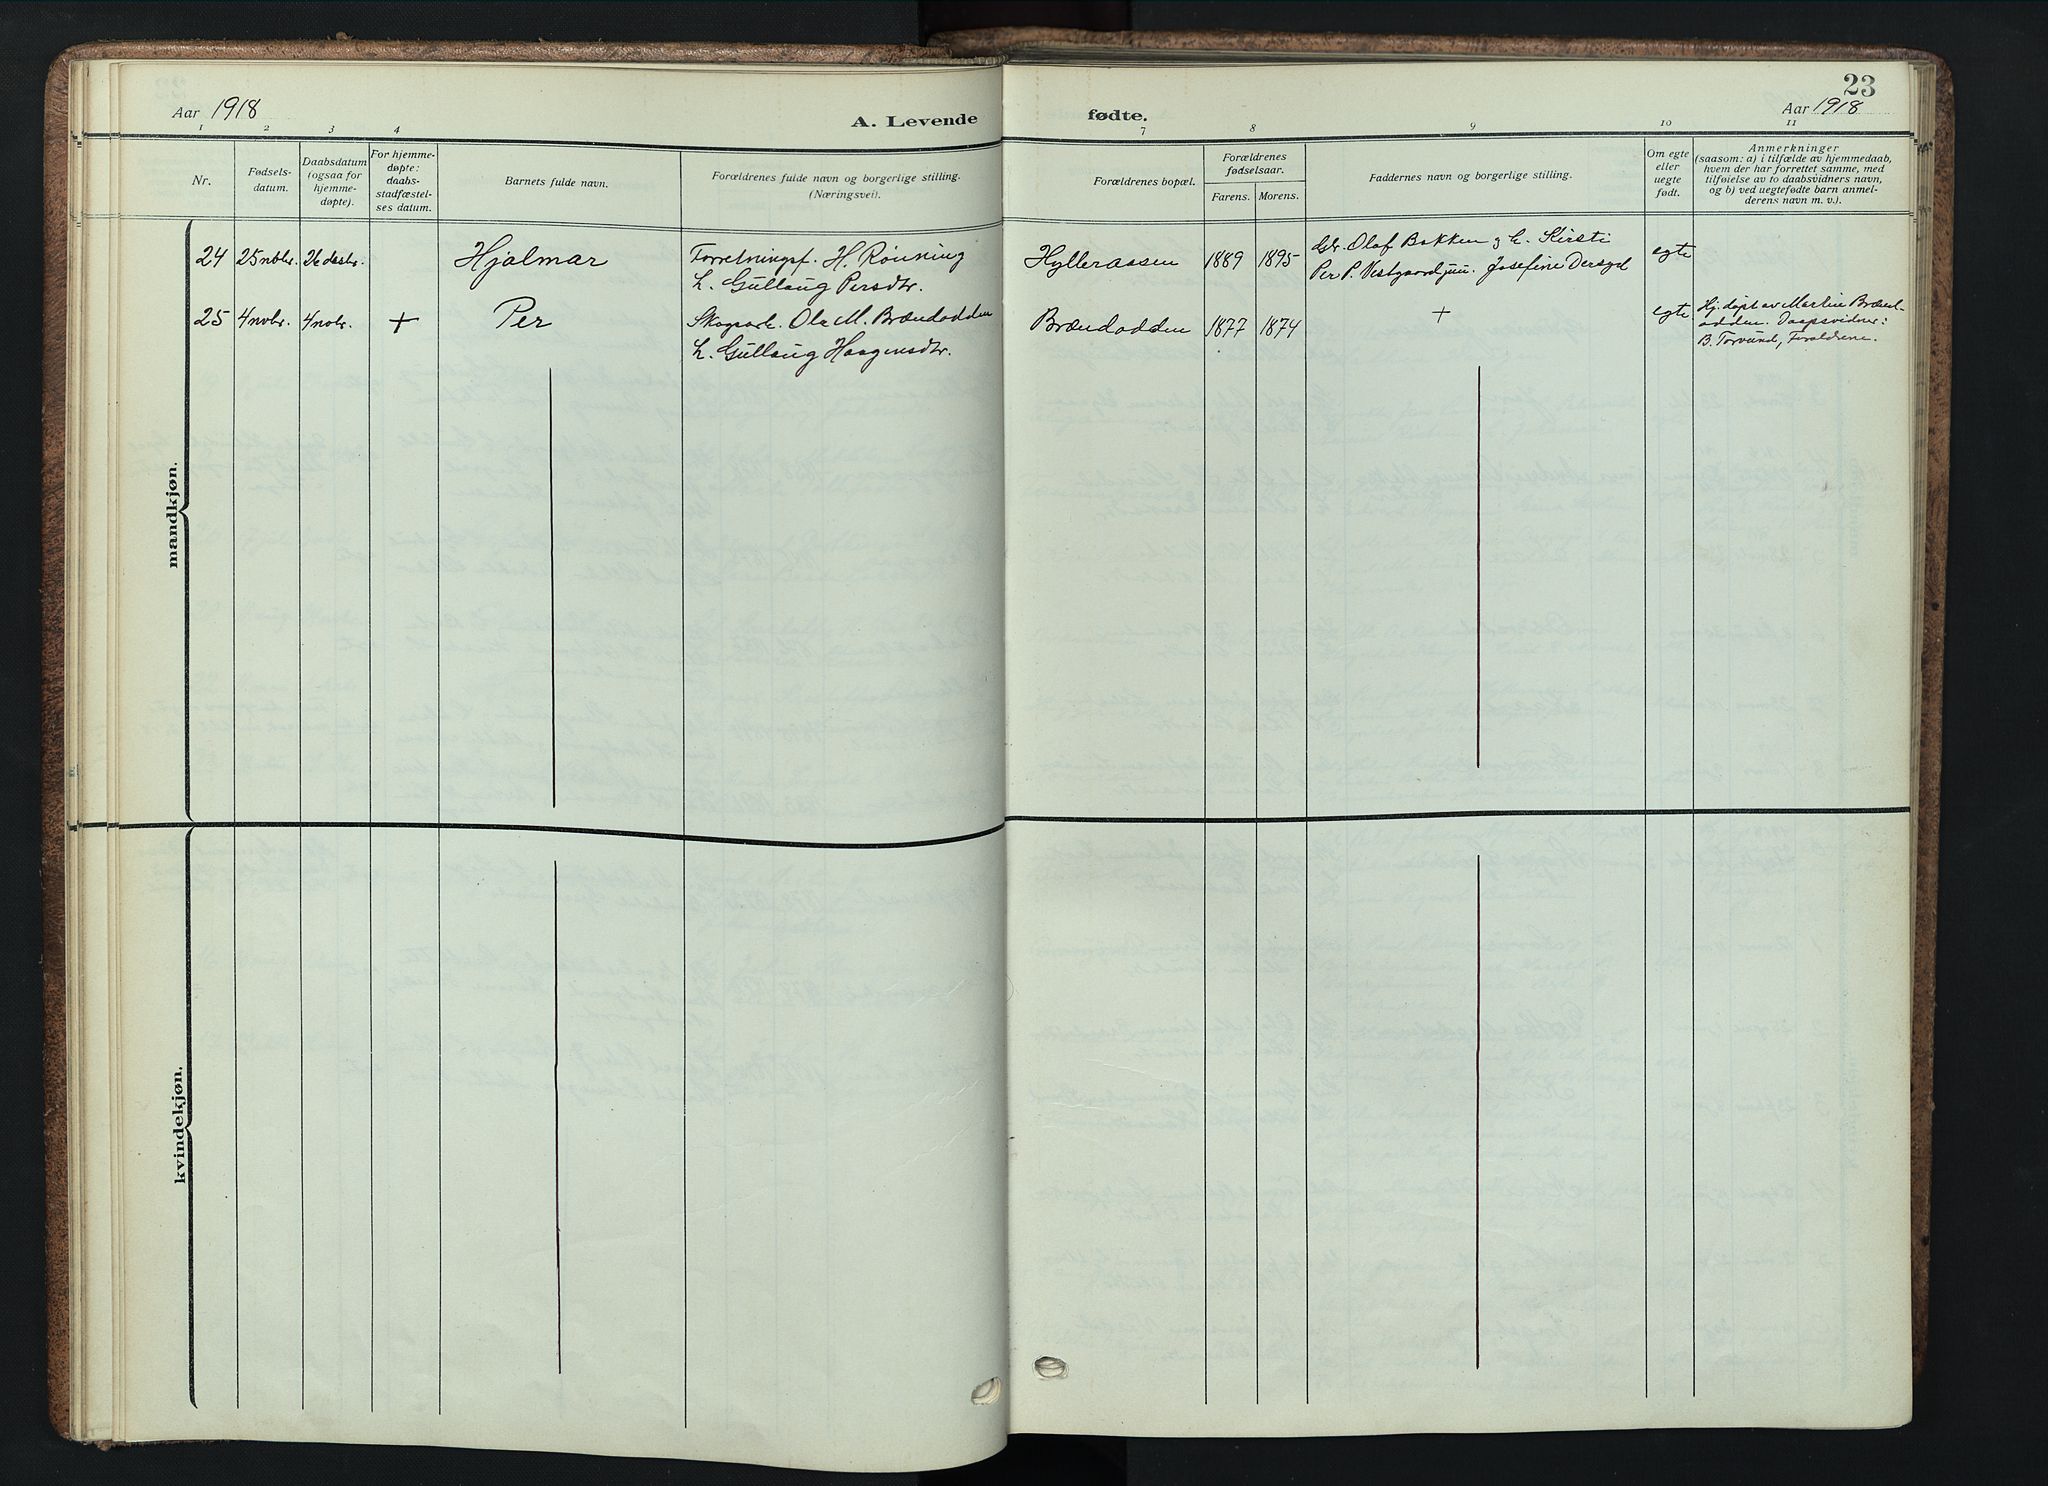 Aar 1918
A. Levende fødte.
23
Aar 1918
1 2 3 4 7 8 9 10 11
Nr.
Fødsels-
datum.
Daabsdatum
(ogsaa for
hjemme-
døpte).
For hjemme-
døpte:
daabs-
stadfæstel-
ses datum.
Barnets fulde navn.
Forældrenes fulde navn og borgerlige stilling.
(Næringsvei).
Forældrenes bopæl.
Forældrenes
fødselsaar.
Farens. Morens.
Faddernes navn og borgerlige stilling.
Om egte
eller
uegte
født.
Anmerkninger
(saasom: a) i tilfælde av hjemmedaab,
hvem der har forrettet samme, med
tilføielse av to daabsvidners navn,
og b) ved uegtefødte barn anmel-
derens navn m. v.).
mandkjøn.
24 25 novbr. 26 desbr. Hjalmar Forretningsf. H. Rønning Hylleraasen 1889 1895 Gbr. Olaf Bakken og h. Kirsti egte
h. Gullaug Persdtr. Per P. Vestgaard jun. Josefine Dersyd
25 4 novbr. 4 novbr. + Per Skogsarb. Ole M. Brændodden Brændodden 1877 1874 + egte Hj. døpt av Martin Brænd-
h. Gullaug Haagensdtr. odden. Daapsvidner:
B. Torvund, Foreldrene.
kvindekjøn.